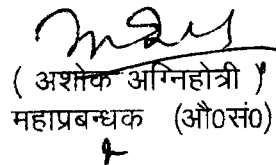 ( अशोक अग्निहोत्री )
महाप्रबन्धक (औ0सं0)